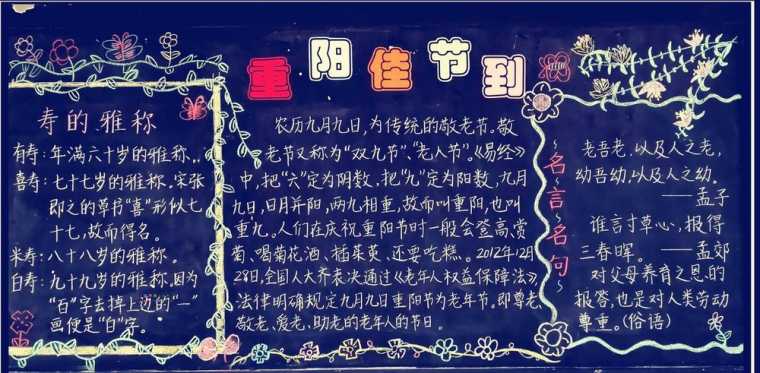 重阳佳节到
寿的雅称
有寿:年满六十岁的雅称...
喜寿:七十七岁的雅称。宋张
即之的草节“喜”形似七
十七,故而得名。
米寿:八十八岁的雅称。
白寿:九十九岁的雅称,因为
“百”字去掉上边的“一”
画便是“白”字。
农历九月九日,为传统的敬老节。敬
老节又称为“双九节”、“老人节”。《易经》
中,把“六”定为阴数,把“九”定为阳数,九月
九日,日月并阳,两九相重,故而叫重阳,也叫
重九。人们在庆祝重阳节时一般会登高、赏
菊、喝菊花酒、插茱萸、还要吃糕。2012年12月
28日,全国人大齐表决通过《老年人权益保障法》
法律明确规定九月九日重阳节为老年节。即尊老、
敬老、爱老、助老的老年人的节日。
名言名句
老吾老,以及人之老,
幼吾幼,以及人之幼。
——孟子
谁言寸草心,报得
三春晖。——孟郊
对父母养育之恩的
报答,也是对人类劳动
尊重。(俗语)